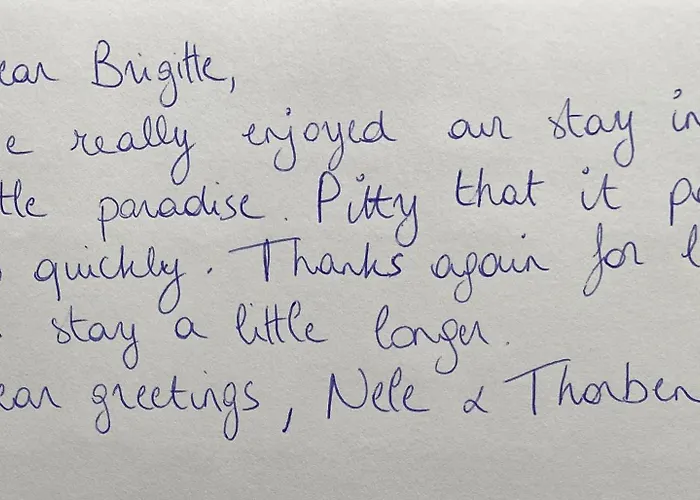 ear Brigitte,
e really enjoyed our stay in
tle paradise. Pitty that it pa
quickly. Thanks again for l
stay a little longer.
ear greetings, Nele & Thorben